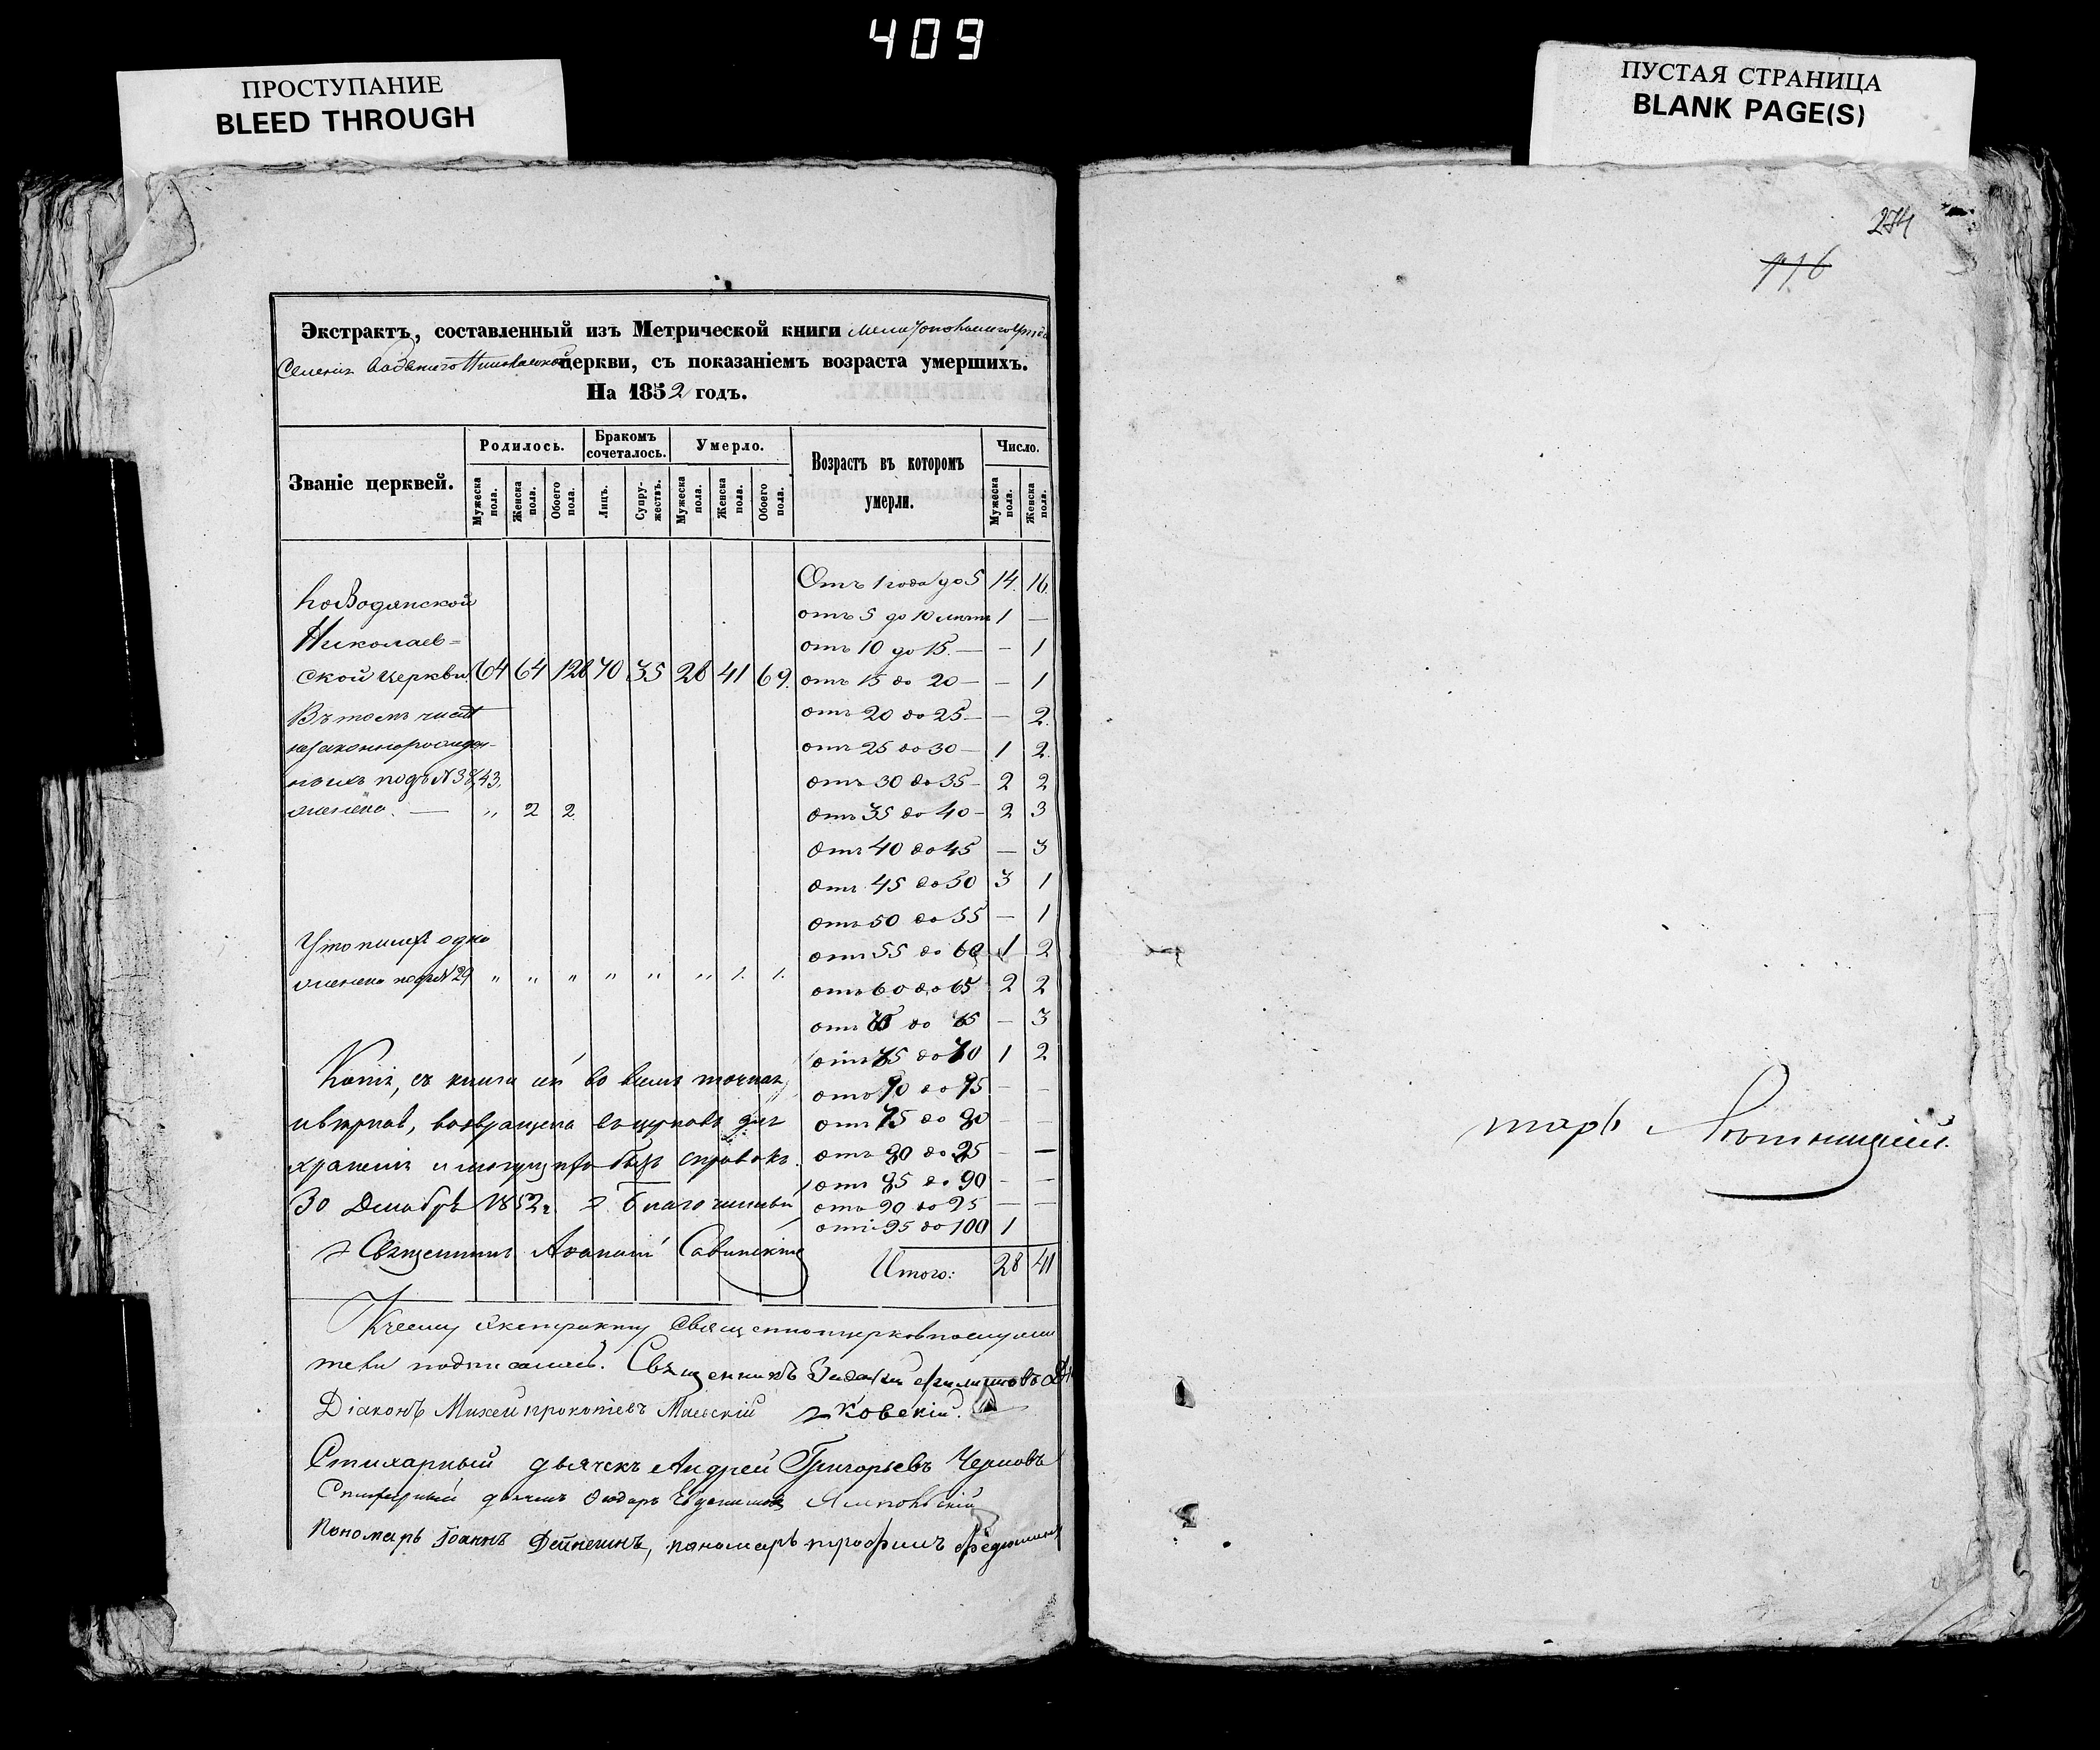 409
ПРОСТУПАНИЕ
BLEED THROUGH
ПУСТАЯ СТРАНИЦА
BLANK PAGE(S)
274
116
Экстрактъ, составленный изъ Метрической книги Мелитопольскаго уѣзда
Селенія Водянаго Николаевской церкви, съ показаніемъ возраста умершихъ.
На 1852 годъ.
Званіе церквей.
Родилось.
Бракомъ сочеталось.
Умерло.
Возрастъ въ которомъ умерли.
Число.
Мужеска пола.
Женска пола.
Обоего пола.
Лицъ.
Супружествъ.
Мужеска пола.
Женска пола.
Обоего пола.
Мужеска пола.
Женска пола.
Водянской
Николаев=
ской церкви. 64 64 128 70 35 28 41 69.
Въ томъ числѣ
незаконнорожден-
ныхъ подъ № 38, 43.
„ 2 2
одно
подъ № 29 „ „ „ „ „ „ 1. 1.
Отъ 1 года до 5 14. 16.
отъ 5 до 10 лѣтъ 1 —
отъ 10 до 15. — — 1
отъ 15 до 20 — — 1
отъ 20 до 25 — — 2.
отъ 25 до 30 — 1 2.
отъ 30 до 35 — 2 2
отъ 35 до 40 — 2 3
отъ 40 до 45 — 3
отъ 45 до 50 3 1
отъ 50 до 55 — 1
отъ 55 до 60 1 2
отъ 60 до 65 2 2
отъ до — 3
отъ до 1 2
отъ до — —
отъ 75 до 80 — —
отъ до — —
отъ 85 до 90 — —
отъ 90 до 95 — —
отъ 95 до 100 1
Итого: 28 41
Копія, съ книги во всемъ точная,
и вѣрная, возвращена въ церковь для
храненія и могущихъ быть справокъ.
30 Декабря 1852 г. Благочинный
Священникъ Савинскій
Къ сему экстракту священноцерковнослужи
тели подписались. Священникъ
Діаконъ Михей Прокопіевъ Маевскій ковскій.
Стихарный дьячекъ Андрей Григорьевъ Черновъ
Стихарный дьячекъ Феодоръ
Пономарь Іоаннъ Дейнекинъ, пономарь Трофимъ
тарь